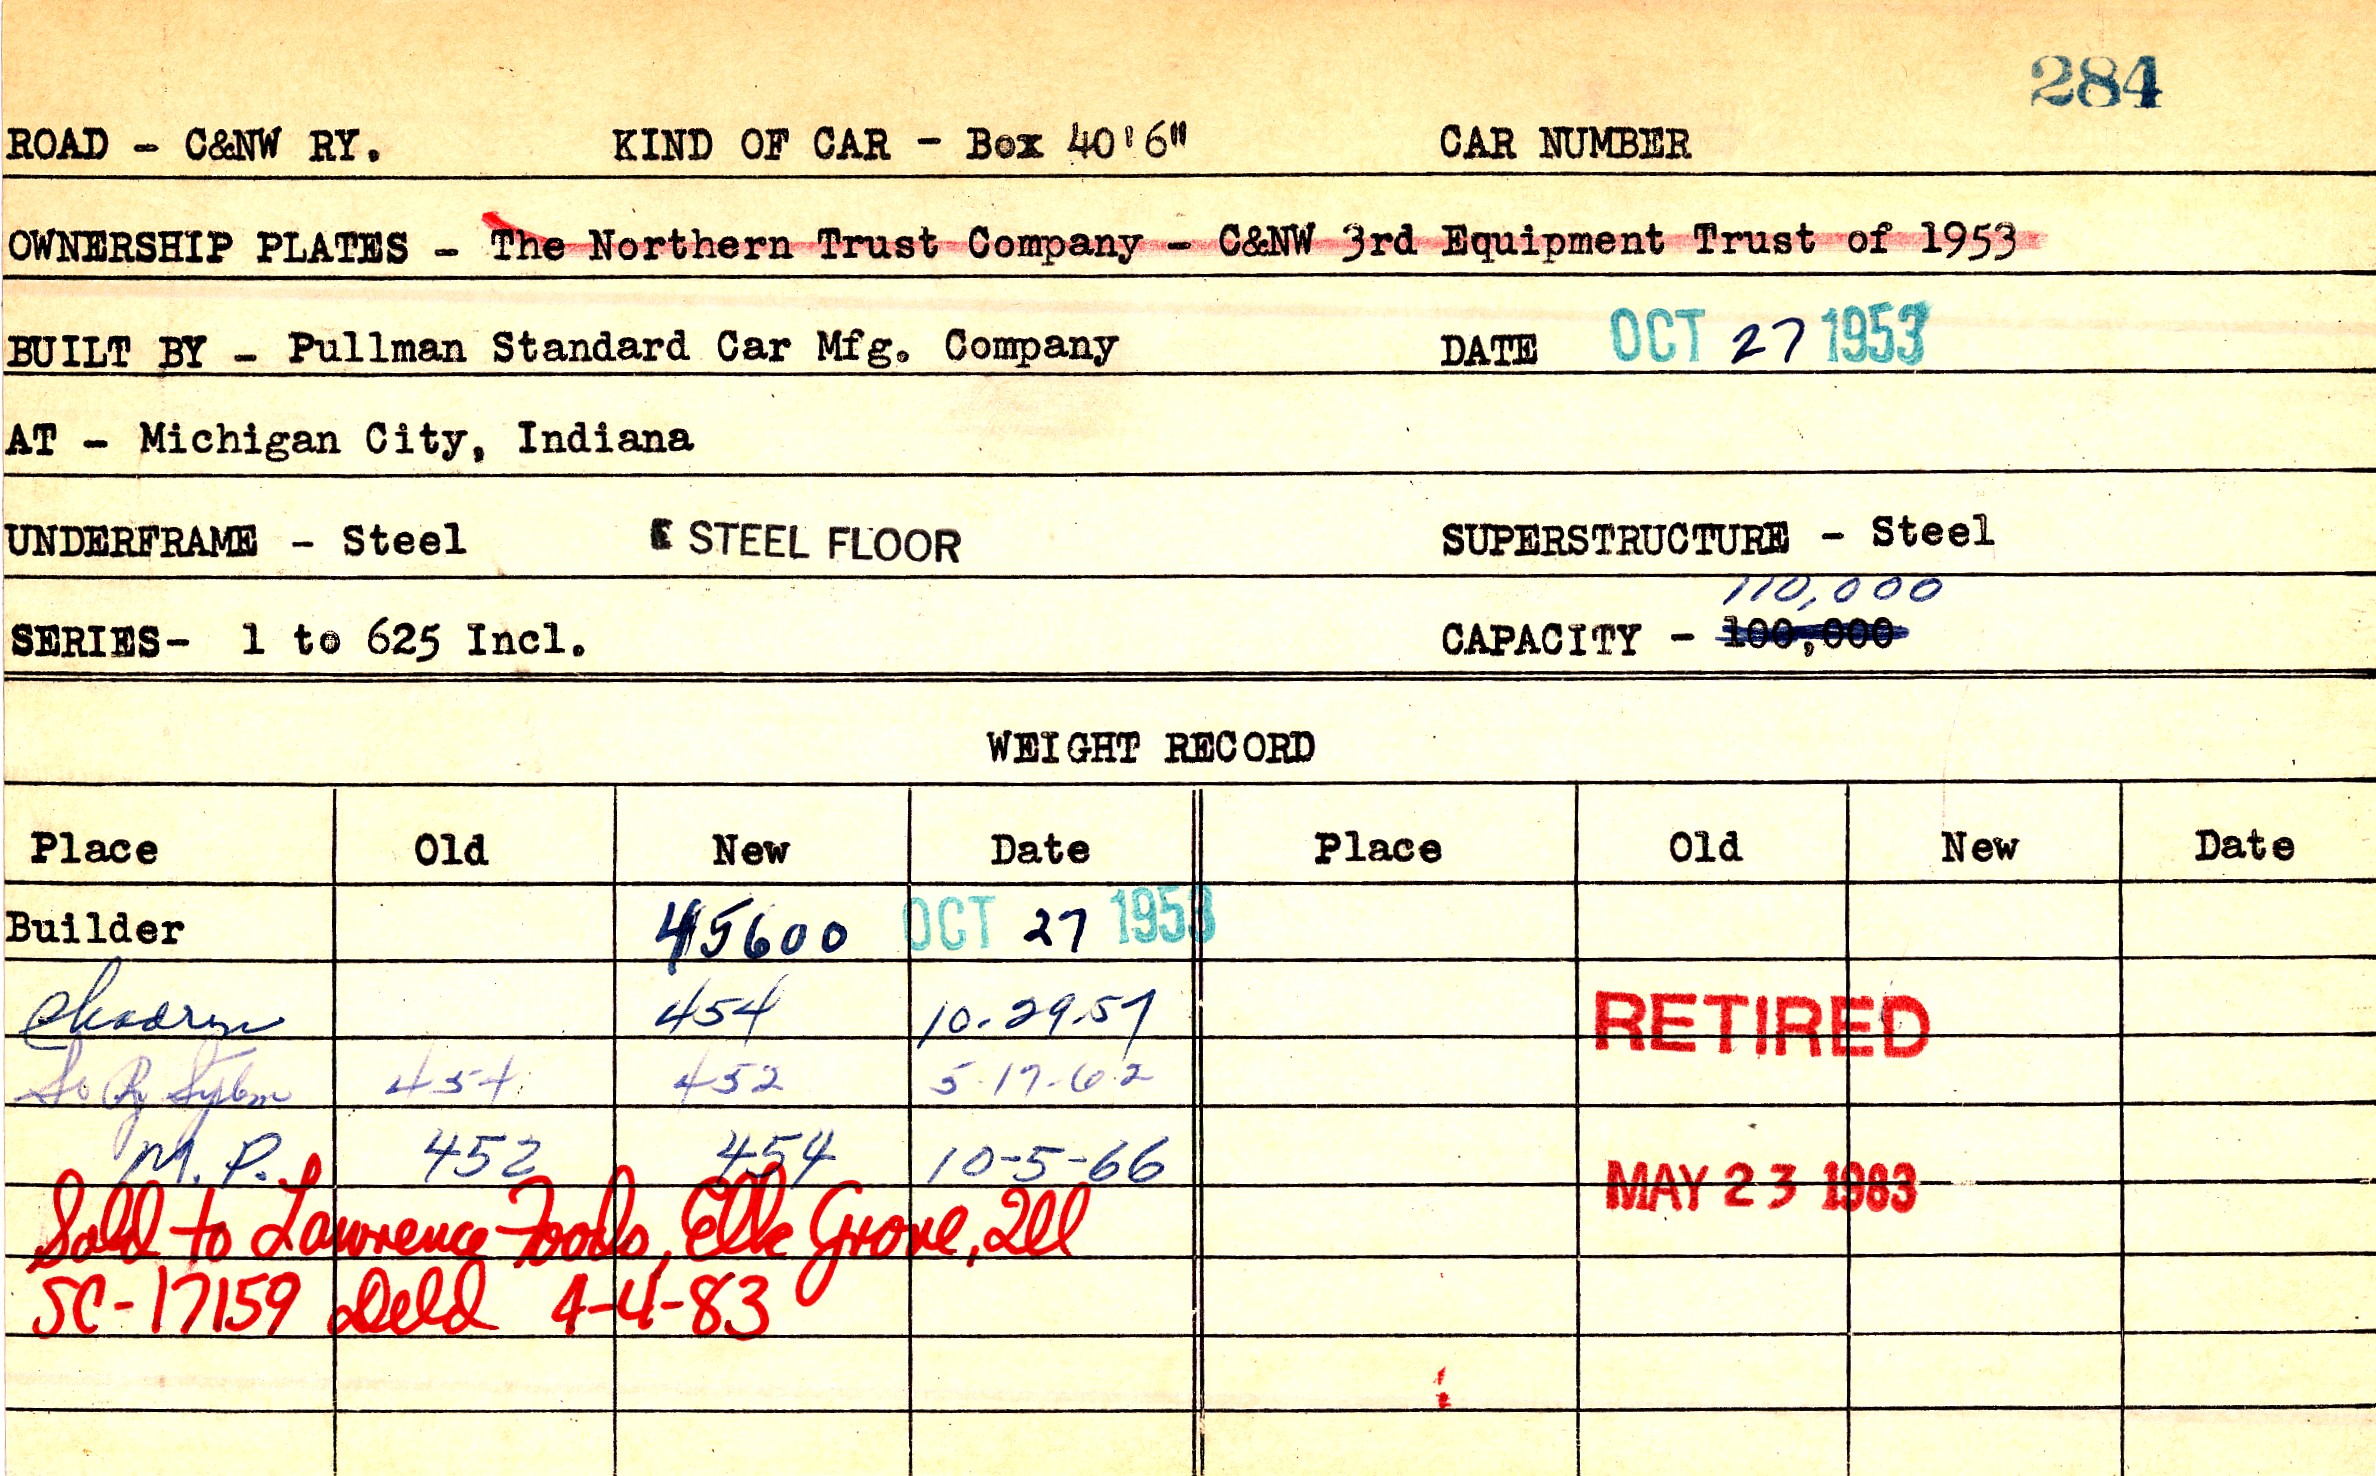 284
ROAD - C&NW RY. KIND OF CAR - Box 40'6" CAR NUMBER
OWNERSHIP PLATES - The Northern Trust Company - C&NW 3rd Equipment Trust of 1953
BUILT BY - Pullman Standard Car Mfg. Company DATE OCT 27 1953
AT - Michigan City, Indiana
UNDERFRAME - Steel STEEL FLOOR SUPERSTRUCTURE - Steel
110,000
SERIES- 1 to 625 Incl. CAPACITY - 100,000
WEIGHT RECORD
Place Old New Date Place Old New Date
Builder 45600 OCT 27 1953
Chadron 454 10-29-57
RETIRED
So Ry System 454 452 5-17-62
M.P. 452 454 10-5-66
MAY 23 1983
Sold to Lawrence Foods, Elk Grove, Ill
SC-17159 Deld 4-4-83